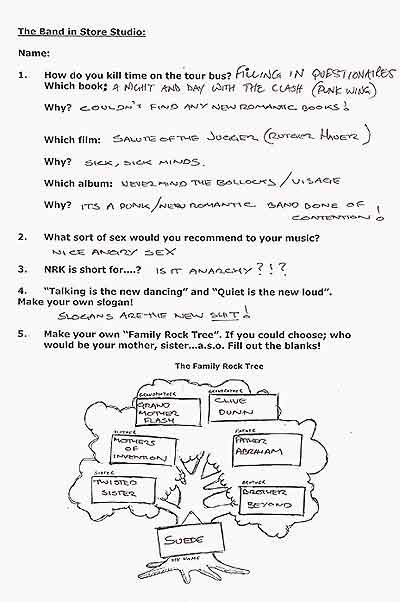 The Band in Store Studio:
Name:
1. How do you kill time on the tour bus? FILLING IN QUESTIONAIRES
Which book: A NIGHT AND DAY WITH THE CLASH (PUNK WING)
Why? COULDN'T FIND ANY NEW ROMANTIC BOOKS!
Which film: SALUTE OF THE JUGGER (RUTGER HAUER)
Why? SICK, SICK MINDS.
Which album: NEVERMIND THE BOLLOCKS / VISAGE
Why? ITS A PUNK/NEW ROMANTIC BAND BONE OF
CONTENTION!
2. What sort of sex would you recommend to your music?
NICE ANGRY SEX
3. NRK is short for....? IS IT ANARCHY?!?
4. "Talking is the new dancing" and "Quiet is the new loud".
Make your own slogan!
SLOGANS ARE THE NEW SHIT!
5. Make your own "Family Rock Tree". If you could choose; who
would be your mother, sister...a.s.o. Fill out the blanks!
The Family Rock Tree
GRANDMOTHER
GRAND
MOTHER
FLASH
GRANDFATHER
CLIVE
DUNN
MOTHER
MOTHERS
OF
INVENTION
FATHER
FATHER
ABRAHAM
SISTER
TWISTED
SISTER
BROTHER
BROTHER
BEYOND
SUEDE
MY NAME